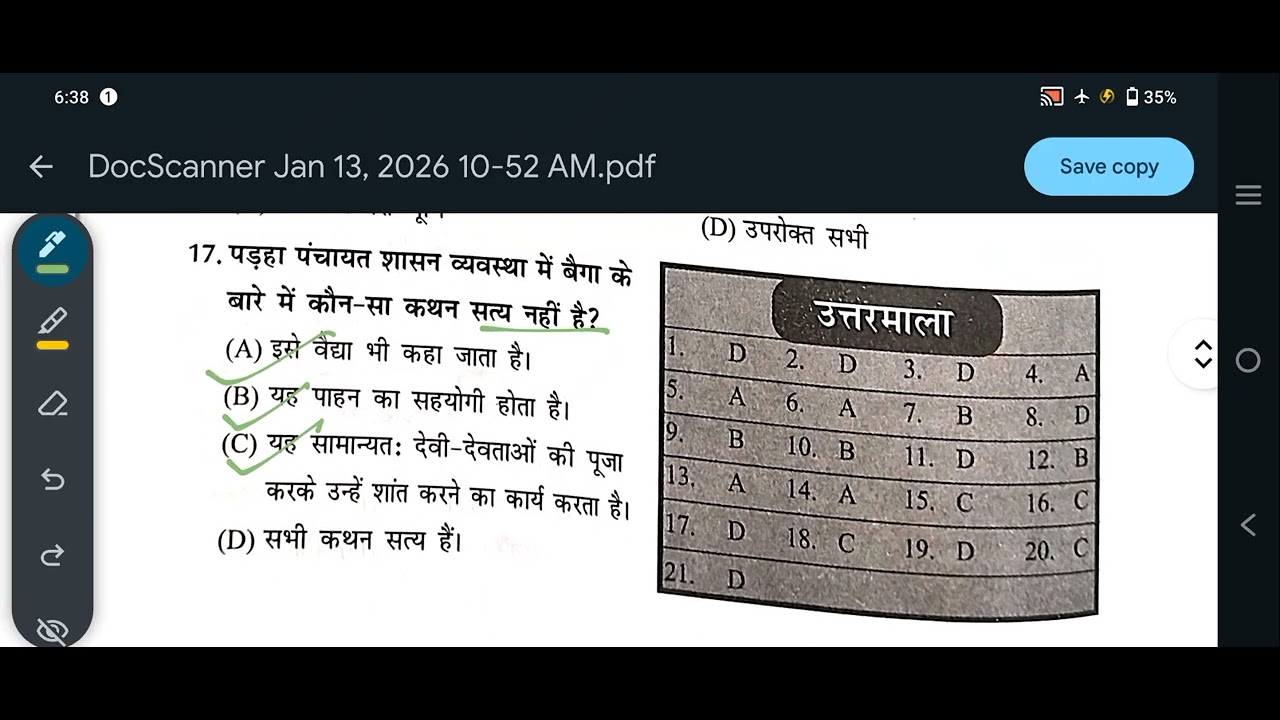 6:38 1 35%
DocScanner Jan 13, 2026 10-52 AM.pdf
Save copy
17. पड़हा पंचायत शासन व्यवस्था में बैगा के
बारे में कौन-सा कथन सत्य नहीं है?
(A) इसे वैद्या भी कहा जाता है।
(B) यह पाहन का सहयोगी होता है।
(C) यह सामान्यत: देवी-देवताओं की पूजा
करके उन्हें शांत करने का कार्य करता है।
(D) सभी कथन सत्य हैं।
(D) उपरोक्त सभी
उत्तरमाला
1. D 2. D 3. D 4. A
5. A 6. A 7. B 8. D
9. B 10. B 11. D 12. B
13. A 14. A 15. C 16. C
17. D 18. C 19. D 20. C
21. D